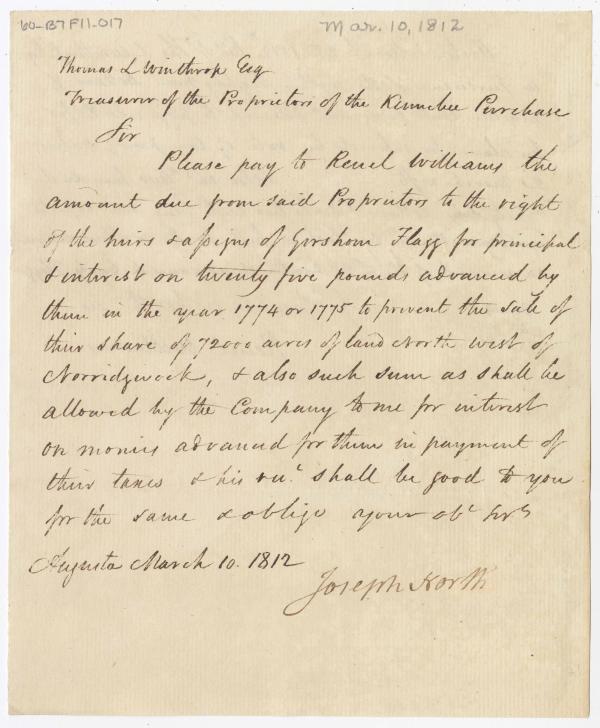 60-B7F11-017
Mar. 10, 1812
Thomas L Winthrop Esq
Treasurer of the Proprietors of the Kennebec Purchase
Sir
Please pay to Reuel Williams the
amount due from said Proprietors to the right
of the heirs & assigns of Gershom Flagg for principal
& interest on twenty five pounds advanced by
them in the year 1774 or 1775 to prevent the sale of
their share of 72000 acres of land North west of
Norridgwock, & also such sum as shall be
allowed by the Company to me for interest
on monies advanced for them in payment of
their taxes & his rect. shall be good to you
for the same & oblige your obt Servt
Augusta March 10. 1812
Joseph North